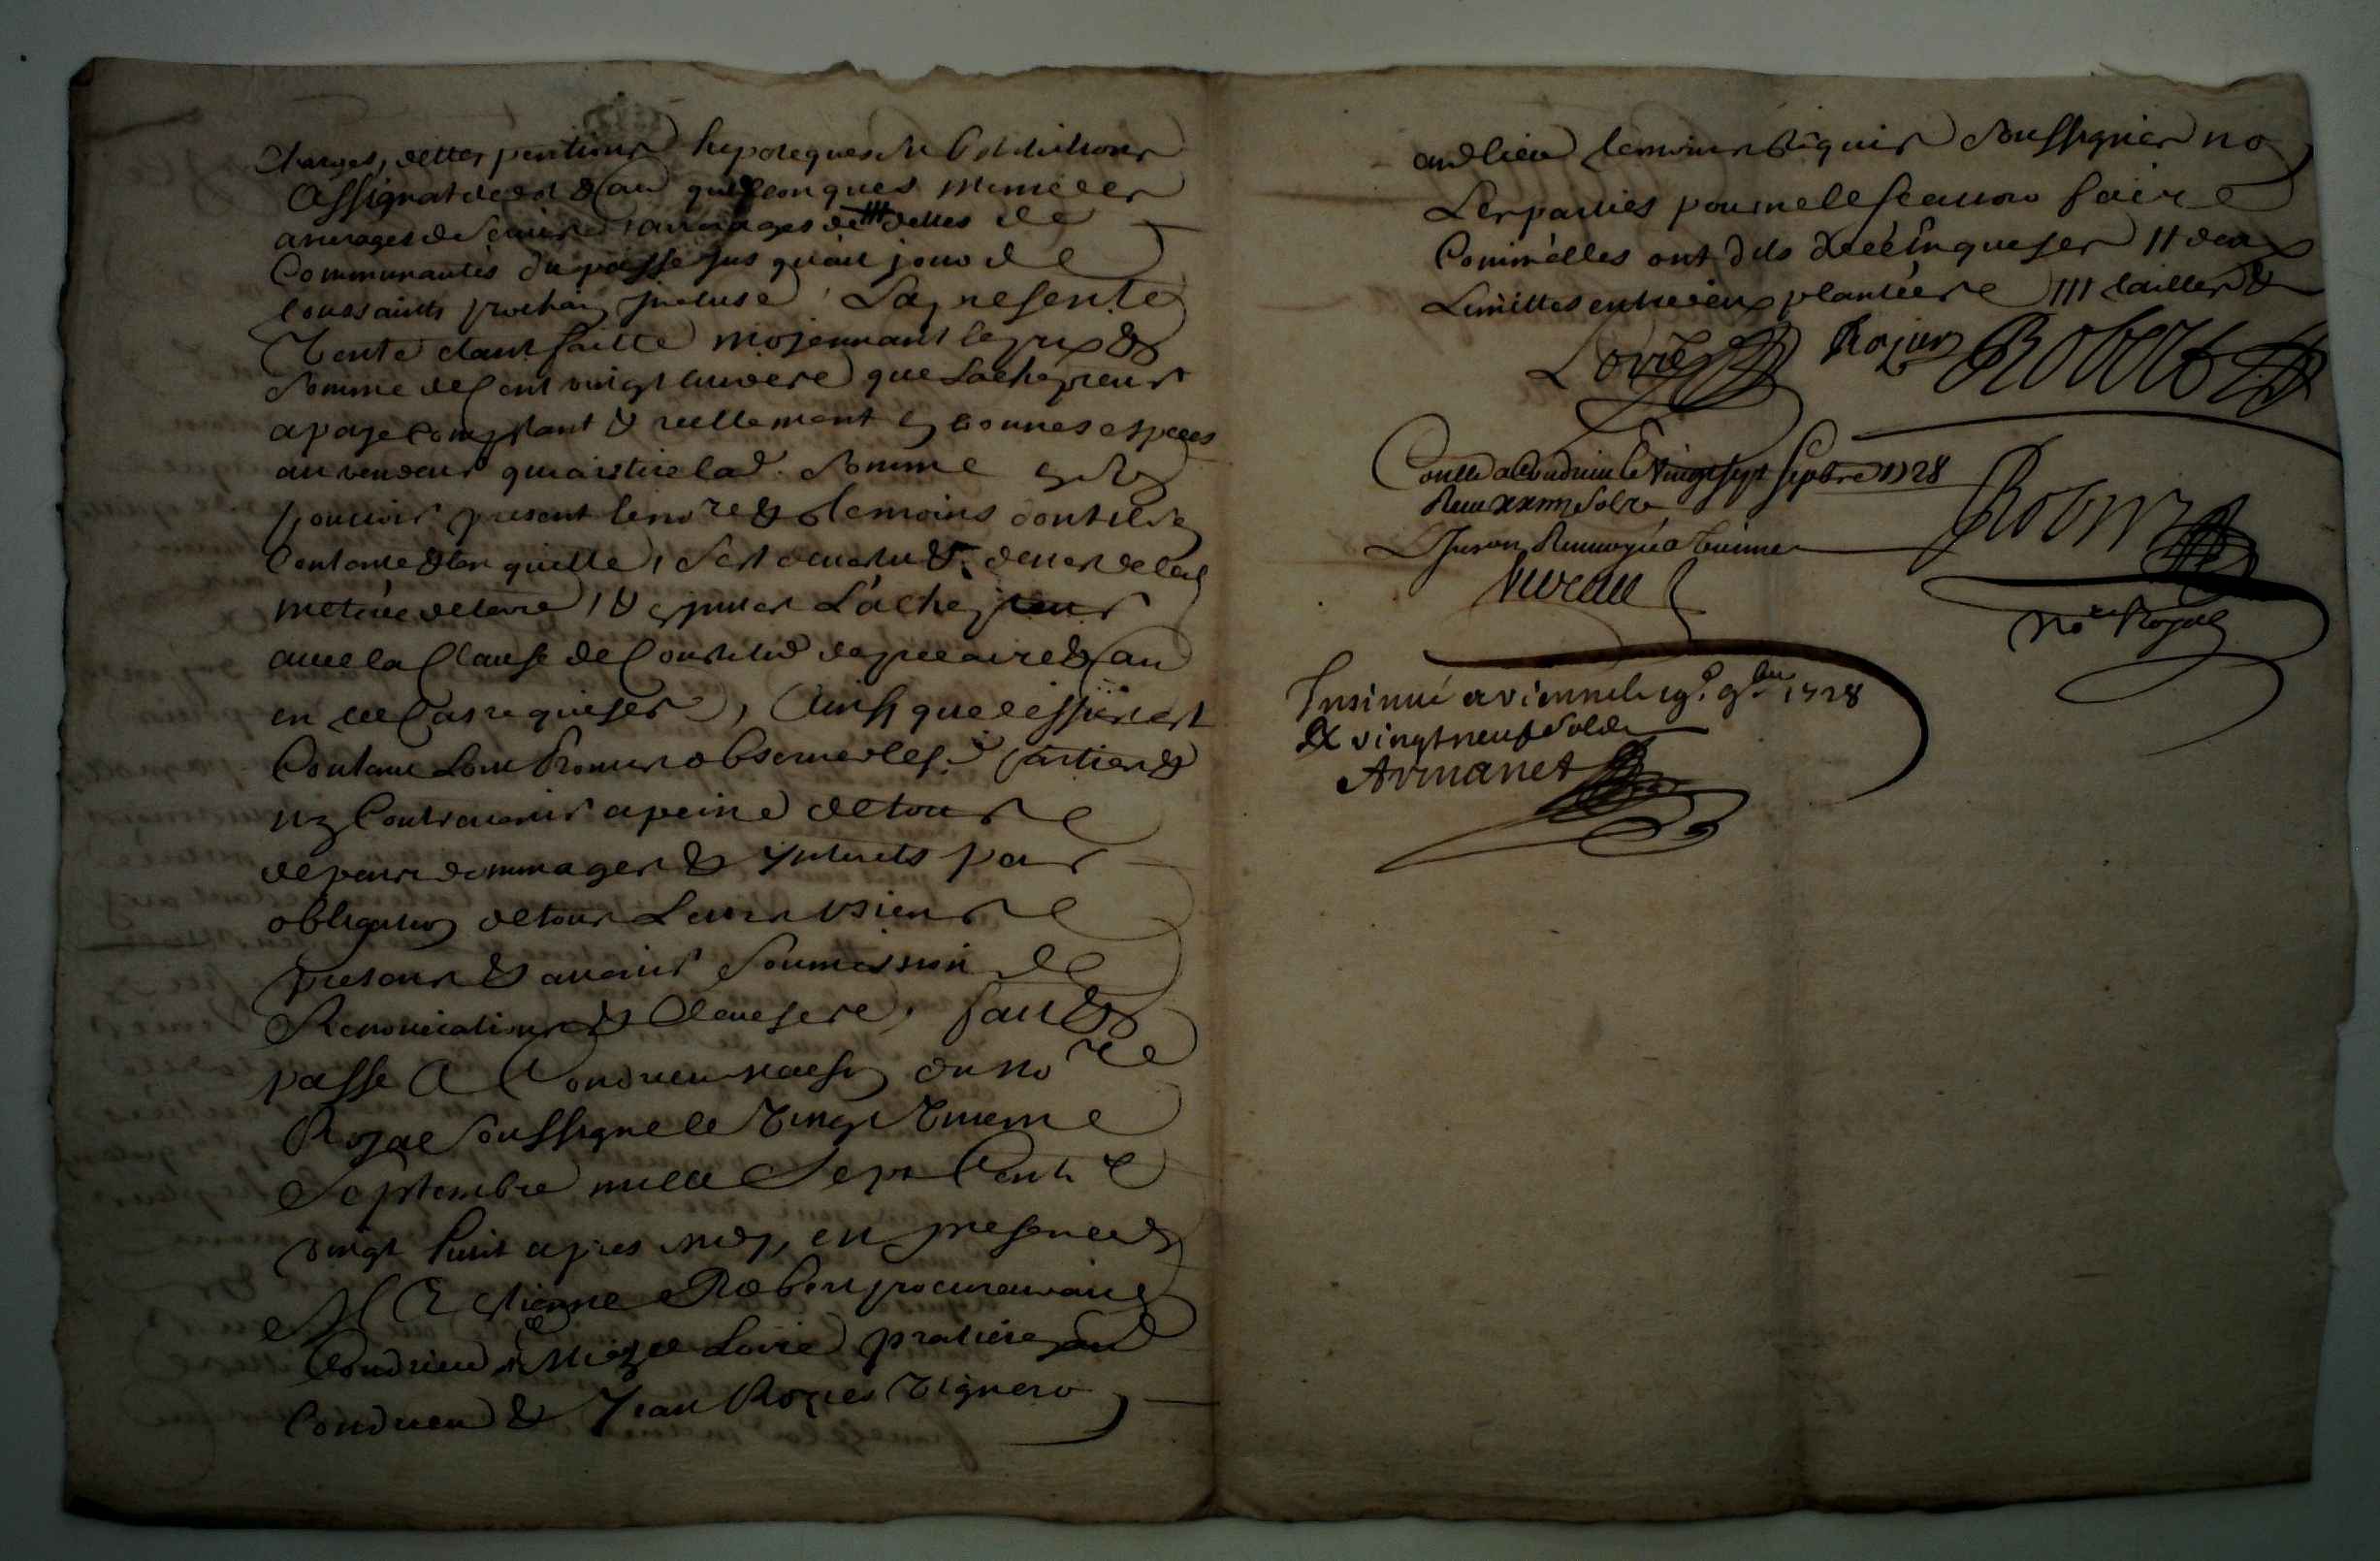 Charges, dettes pentions hipoteques substitutions
assignat de dot & au quelconques mime des
arrerages de servis & arrerages de dettes de
Communautés du passé jus quau jour de
toussaints prochain incluse, La presente
Vente etant faitte mojennant le prix &
Somme de Cent vingt livres que Lachepteur
a paye Comptant & reellement en bonnes especes
au vendeur qui a retire lad. Somme
pouvoir present le nore & temoins dont il se
Contante & len quitte, sest devetu & de
meteree de terre, & Lacheipteur
avec la Clause de Constitut de precaire & au
en tel Cas requises, Ainsy que dessus est
Contenu Lont Promis observer les parties &
ny Contrevenir a peine de tous
depens dommages & ynterets par
obligation de tous Leurs biens
presens & avenir Soumission
Renonciations & Clauses, fait &
passe A Condrieu maison du nore
Royal soussigne le vingt
Septembre mille Sept Cents
vingt huit apres midy, en presence de
M Estienne Robert procureur aud
Condrieu, Loire praticien aud
Condrieu & Jean Rozier vigneron
aud lieu temoins requis soussignes no
Les parties pour ne le scavoir faire
Comme elles ont dit de ce Enquises // deux
Limittes entre deux plantées /// tailles &
Loire Rozier Robert
Conlle a Condrieu le Vingt sept septbre 1728
Receu xxiiii solz
Juron Renvoyé a Vienne
Robert
nore Royal
Insinué a vienne le 19e 9bre 1728
Rx vingt neuf sols
Armanet